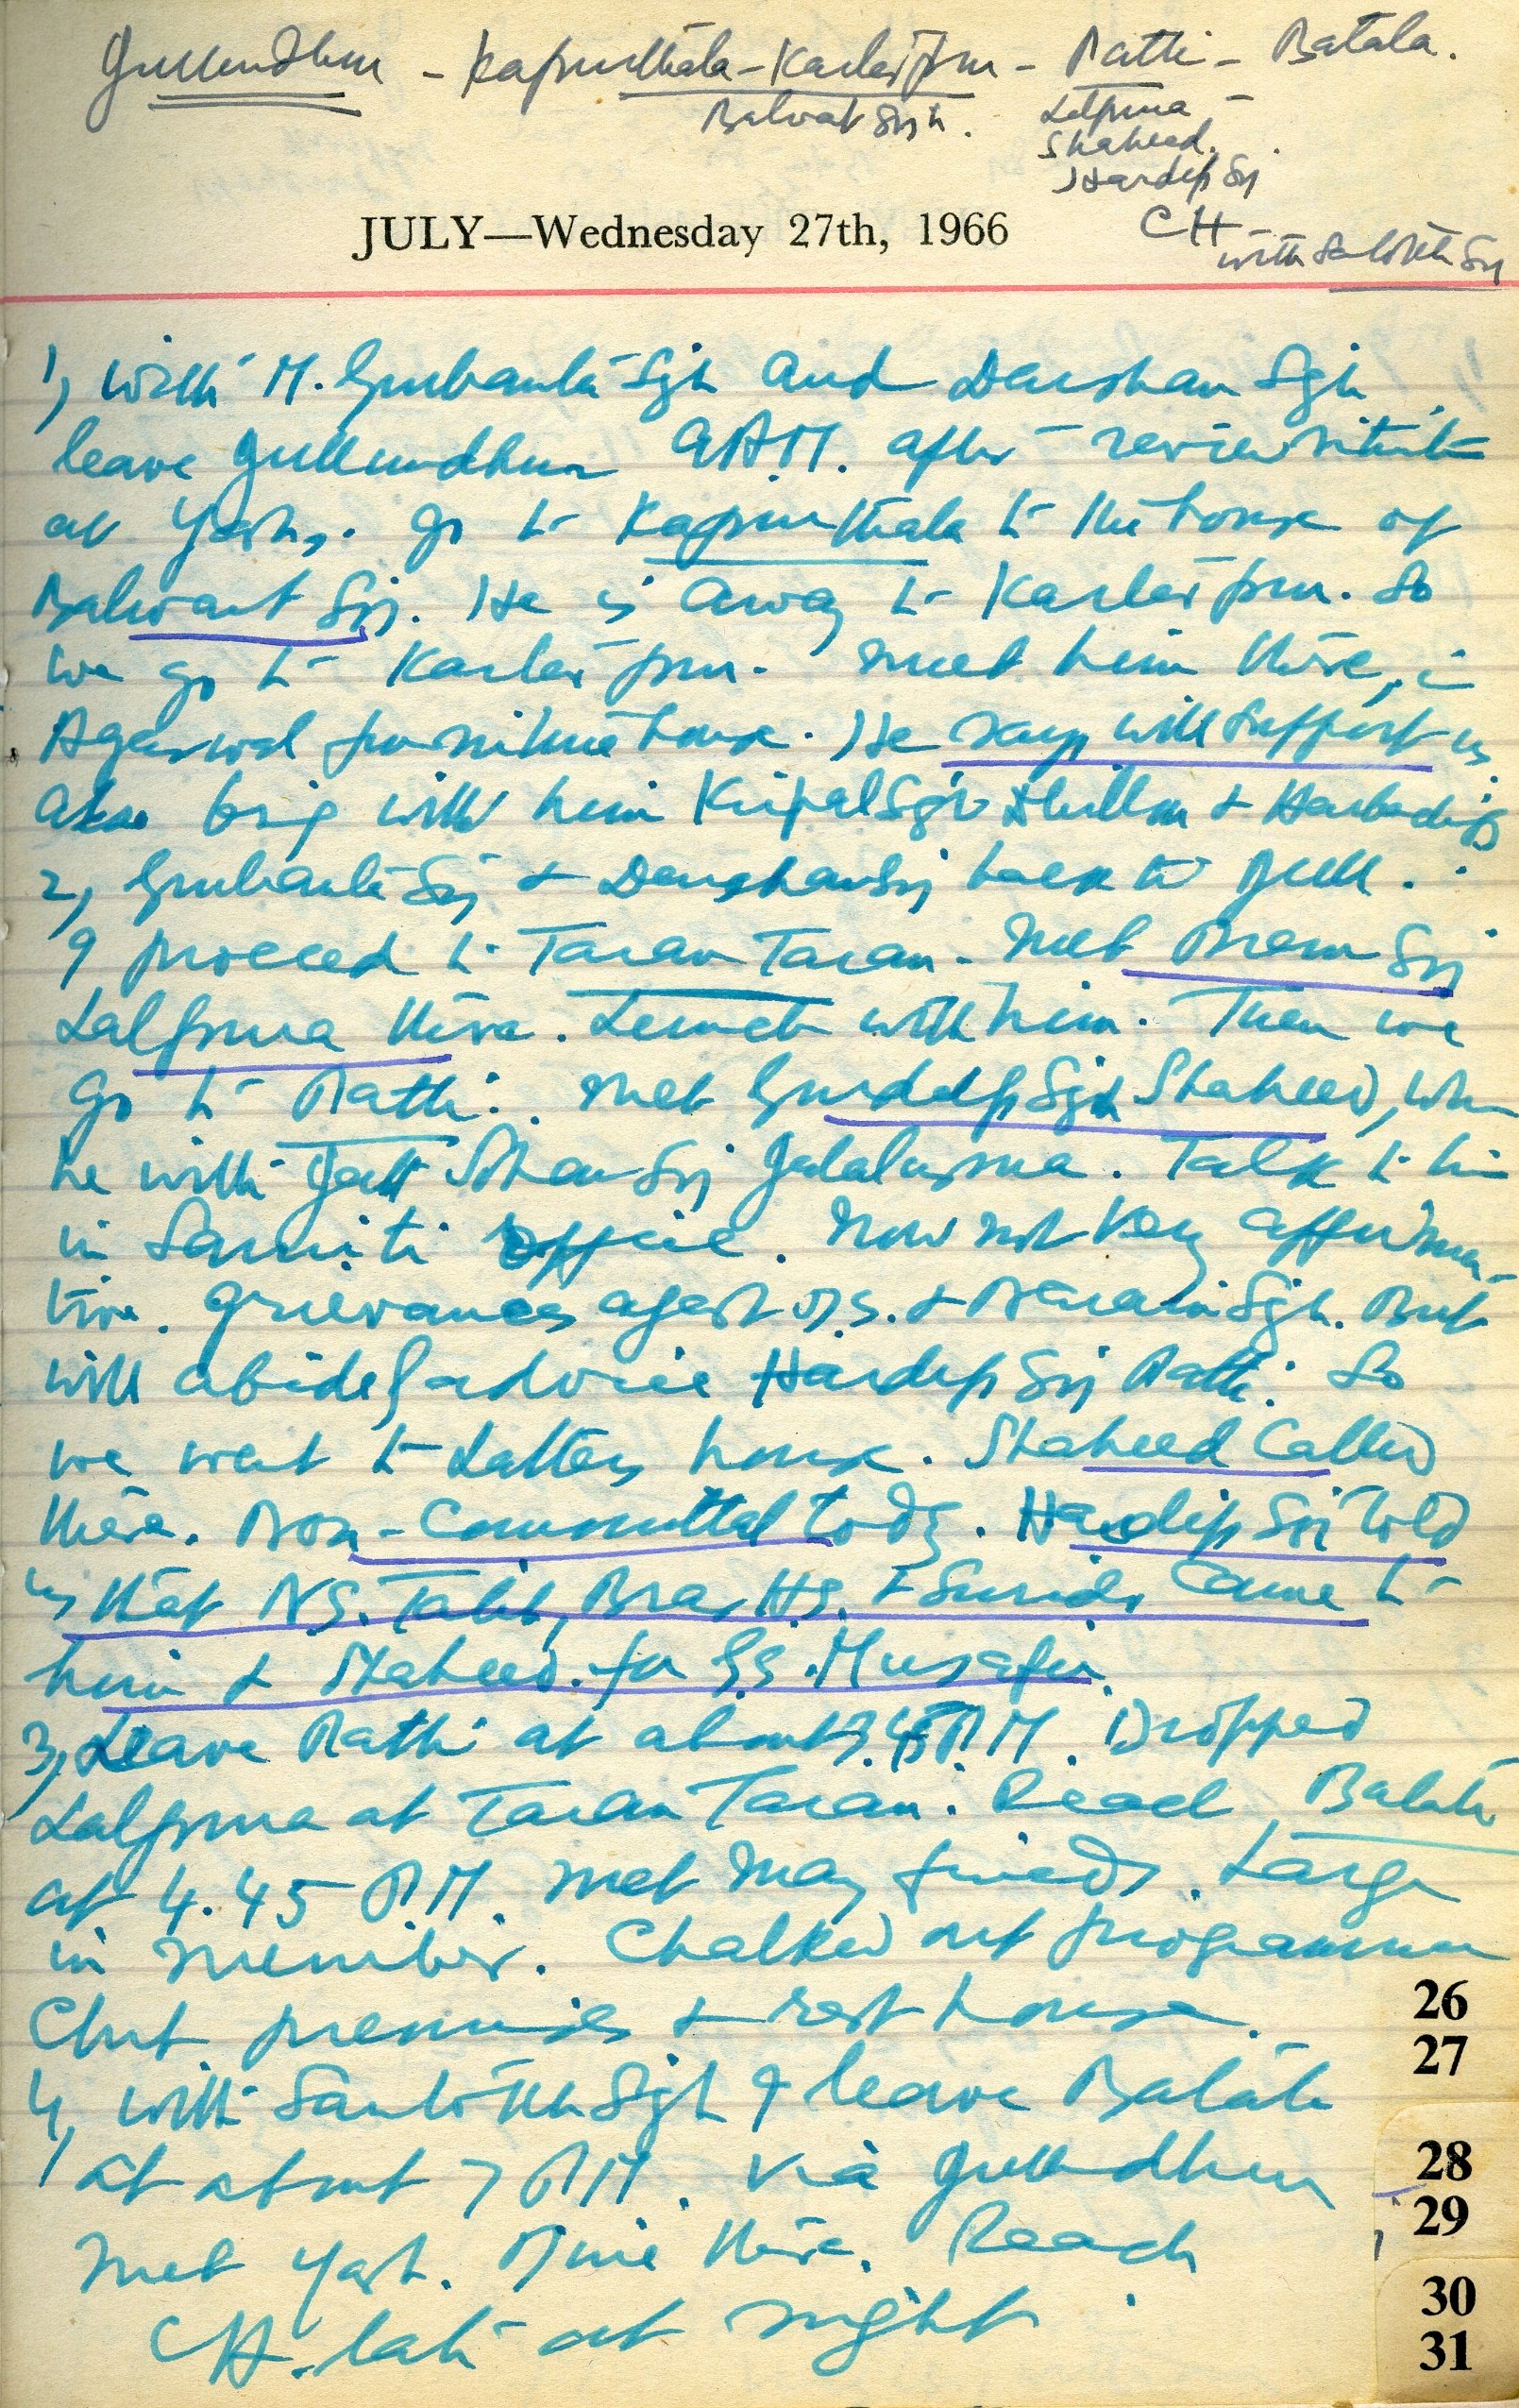 Jullundhur - Kapurthala - Kartarpur - Patti - Batala.
Balwat Sgh.
Lalpura -
Shaheed.
Hardip Sg
CH
with Santokh Sg
JULY—Wednesday 27th, 1966
1) with M. Gurbanta Sgh and Darshan Sgh
leave Jullundhur 9 A.M. after review
at Yash's. Go to Kapurthala to the house of
Balwant Sg. He is away to Kartarpur. So
we go to Kartarpur. Meet him there, in
Agarwal furniture house. He says will support us
also brig with him Kirpal Sgh Dhillon &
2) Gurbanta Sg & Darshan Sg back to Jull.
I proceed to Taran Taran. Met Prem Sg
Lalpura there. Lunch with him. Then we
go to Patti. Met Gurdip Sgh Shaheed, when
he with Jatt Sohan Sg Jalalusma. Talk to him
in Samiti office. Now not very affirma-
tive. Grievances agast D.S. & Narain Sgh. But
will abide advice Hardip Sg Patti. So
we went to Latters house. Shaheed called
there. Non-Committal tody. Hardip Sg told
us that NS. Talib, Brar HS. & came to
him & Shaheed. for GS. Musafir.
3) Leave Patti at about 3.45 P.M. Dropped
Lalpura at Taran Taran. Reach Batala
at 4.45 PM. Met may frieds. Large
in number. Chalked out programme
Club premises & rest house.
4) with Santokh Sgh I leave Batala
at about 7 PM. via Jullundhur
Met Yash. Dine there. Reach
CH. late at night
26
27
28
29
30
31